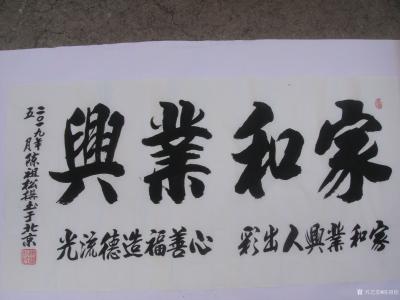 家和業興
家和業興人出彩 心善福造德流光
二〇一九年五月陳祖松撰书于北京